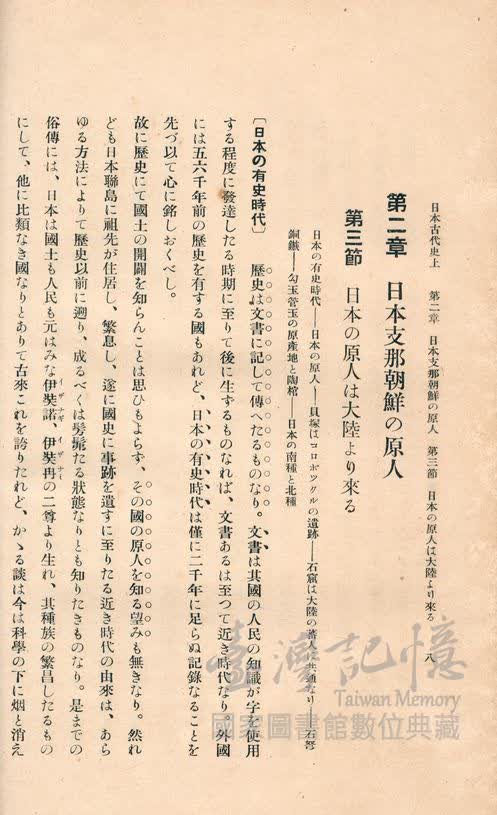 日本古代史上　第二章　日本支那朝鮮の原人　第三節　日本の原人は大陸より來る　八
第二章　日本支那朝鮮の原人
第三節　日本の原人は大陸より來る
日本の有史時代――日本の原人――貝塚はコロボックルの遺跡――石窟は大陸の蕃人と共通なり――石弩
銅鏃――勾玉管玉の原產地と陶棺――日本の南種と北種
〔日本の有史時代〕　歷史は文書に記して傳へたるものなり。文書は其國の人民の知識が字を使用
する程度に發達したる時期に至りて後に生ずるものなれば、文書あるは至つて近き時代なり。外國
には五六千年前の歷史を有する國もあれど、日本の有史時代は僅に二千年に足らぬ記錄なることを
先づ以て心に銘しおくべし。
故に歷史にて國土の開闢を知らんことは思ひもよらず、その國の原人を知る望みも無きなり。然れ
ども日本聯島に祖先が住居し、繁息し、遂に國史に事跡を遺すに至りたる近き時代の由來は、あら
ゆる方法によりて歷史以前に遡り、成るべくは髣髴たる狀態なりとも知りたきものなり。是までの
俗傳には、日本は國土も人民も元はみな伊奘諾、伊奘冉の二尊より生れ、其種族の繁昌したるもの
イザナギ　イザナミ
にして、他に比類なき國なりとありて古來これを誇りたれど、かゝる談は今は科學の下に烟と消え
臺灣記憶
Taiwan Memory
國家圖書館數位典藏